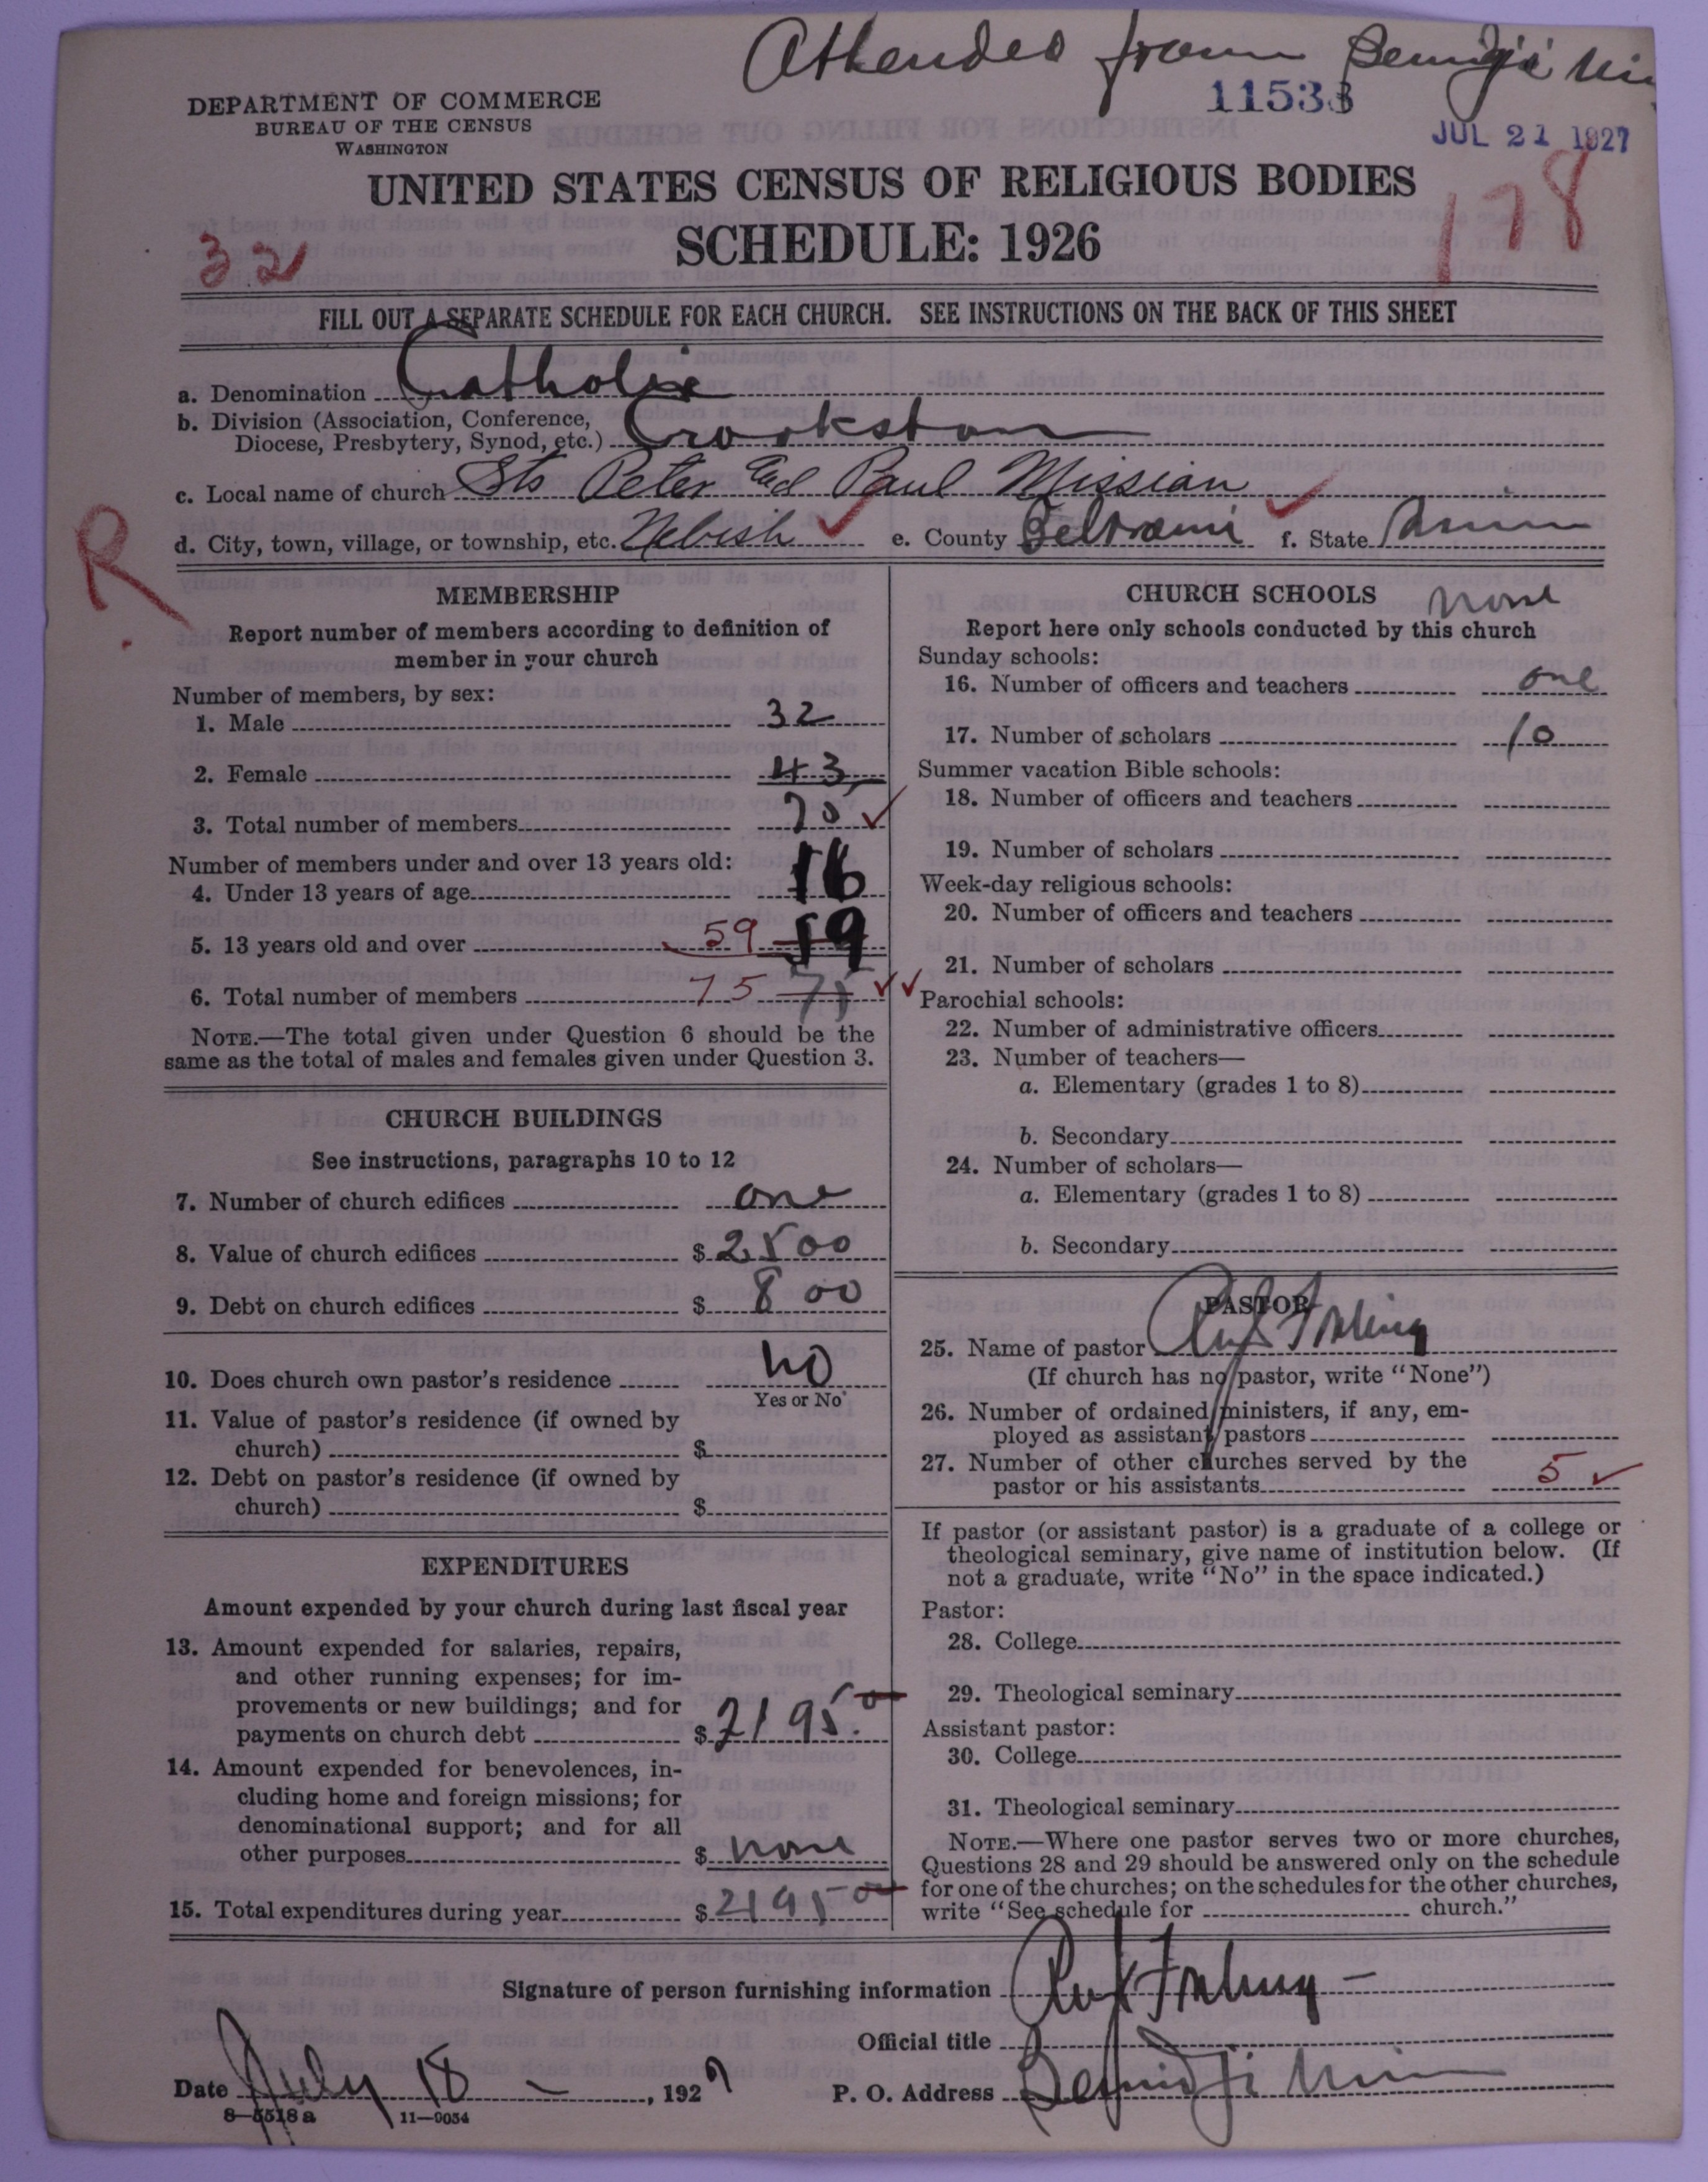 Attended from Bemidji Min
11533
JUL 21 1927
DEPARTMENT OF COMMERCE
BUREAU OF THE CENSUS
WASHINGTON
UNITED STATES CENSUS OF RELIGIOUS BODIES
SCHEDULE: 1926
32
178
FILL OUT A SEPARATE SCHEDULE FOR EACH CHURCH. SEE INSTRUCTIONS ON THE BACK OF THIS SHEET
a. Denomination Catholic
b. Division (Association, Conference,
Diocese, Presbytery, Synod, etc.) Crookston
c. Local name of church Sts Peter and Paul Mission
d. City, town, village, or township, etc. Nebish e. County Beltrami f. State Minn
R
MEMBERSHIP
Report number of members according to definition of
member in your church
Number of members, by sex:
1. Male 32
2. Female 43
3. Total number of members 75
Number of members under and over 13 years old:
4. Under 13 years of age 16
5. 13 years old and over 59 59
6. Total number of members 75 75
NOTE.—The total given under Question 6 should be the
same as the total of males and females given under Question 3.
CHURCH BUILDINGS
See instructions, paragraphs 10 to 12
7. Number of church edifices one
8. Value of church edifices $ 2500
9. Debt on church edifices $ 800
10. Does church own pastor's residence no
Yes or No
11. Value of pastor's residence (if owned by
church) $
12. Debt on pastor's residence (if owned by
church) $
EXPENDITURES
Amount expended by your church during last fiscal year
13. Amount expended for salaries, repairs,
and other running expenses; for im-
provements or new buildings; and for
payments on church debt $ 2195.
14. Amount expended for benevolences, in-
cluding home and foreign missions; for
denominational support; and for all
other purposes $ none
15. Total expenditures during year $ 2195
CHURCH SCHOOLS none
Report here only schools conducted by this church
Sunday schools:
16. Number of officers and teachers one
17. Number of scholars 10
Summer vacation Bible schools:
18. Number of officers and teachers
19. Number of scholars
Week-day religious schools:
20. Number of officers and teachers
21. Number of scholars
Parochial schools:
22. Number of administrative officers
23. Number of teachers—
a. Elementary (grades 1 to 8)
b. Secondary
24. Number of scholars—
a. Elementary (grades 1 to 8)
b. Secondary
PASTOR
25. Name of pastor
(If church has no pastor, write "None")
26. Number of ordained ministers, if any, em-
ployed as assistant pastors
27. Number of other churches served by the
pastor or his assistants 5
If pastor (or assistant pastor) is a graduate of a college or
theological seminary, give name of institution below. (If
not a graduate, write "No" in the space indicated.)
Pastor:
28. College
29. Theological seminary
Assistant pastor:
30. College
31. Theological seminary
NOTE.—Where one pastor serves two or more churches,
Questions 28 and 29 should be answered only on the schedule
for one of the churches; on the schedules for the other churches,
write "See schedule for church."
Signature of person furnishing information
Official title
Date July 18 , 1927 P. O. Address Bemidji Minn
8—5518 a 11—9054